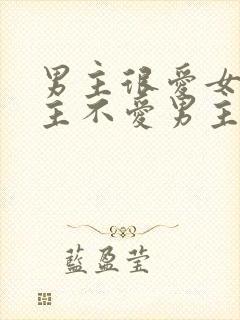 男主很爱女
主不爱男主
藍盈莹